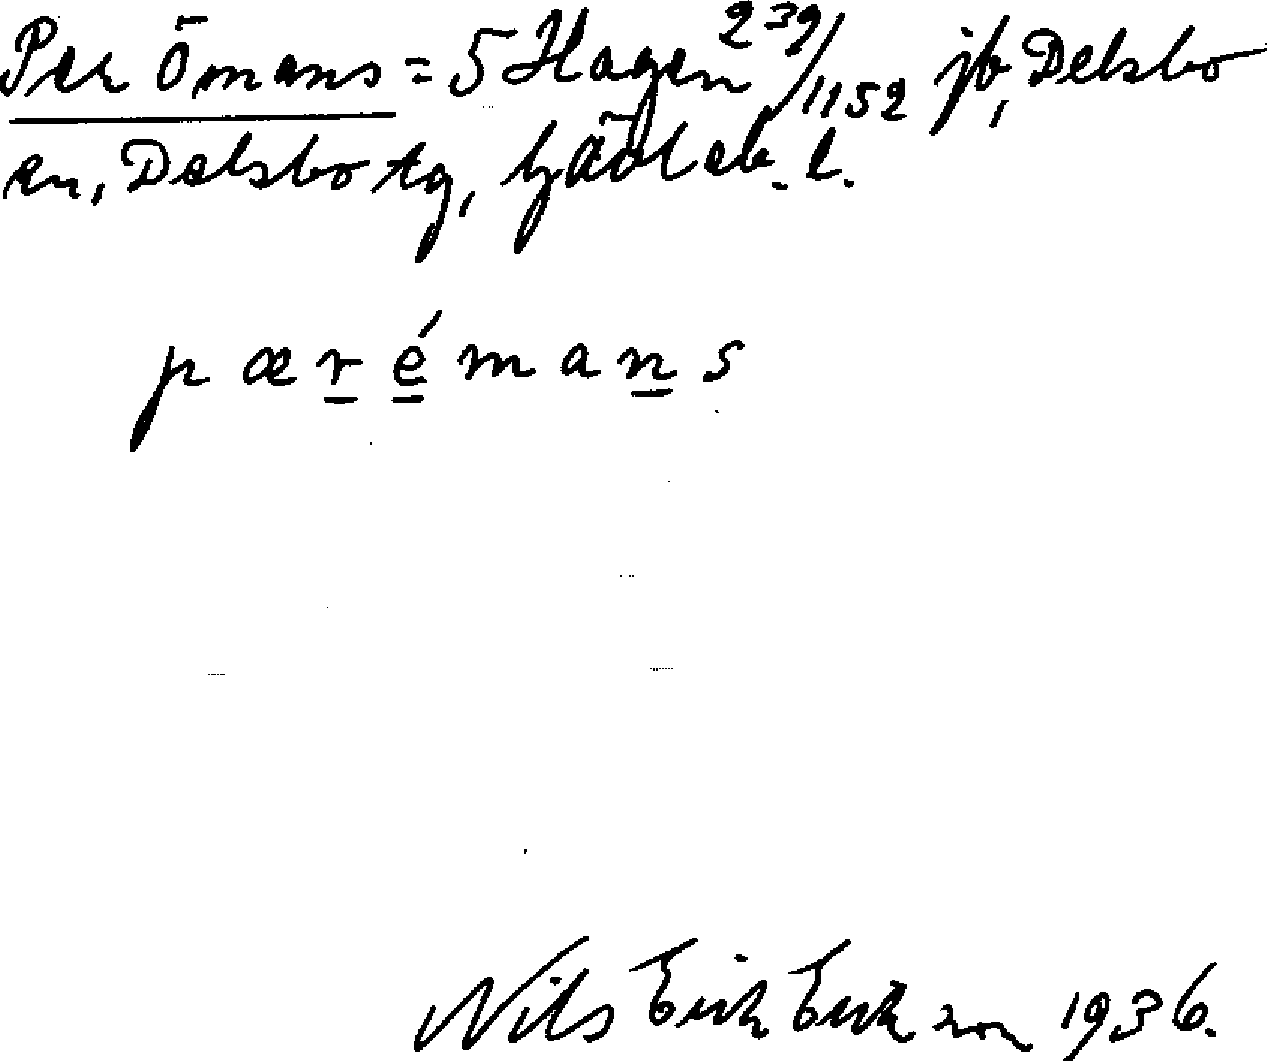 Per Ömans = 5 Hagen 239/1152 jb, Delsbo
sn, Delsbo tg, Gävleb. l.
pærémans
Nils Erik Erikson 1936.